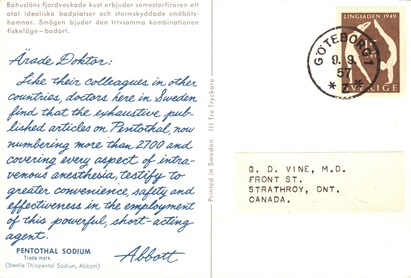 Bohusläns fjordveckade kust erbjuder semesterfiraren ett
otal idealiska badplatser och stormskyddade småbåts-
hamnar. Smögen bjuder den trivsamma kombinationen
fiskeläge – badort.
Ärade Doktor:
Like their colleagues in other
countries, doctors here in Sweden
find that the exhaustive pub-
lished articles on Pentothal, now
numbering more than 2700 and
covering every aspect of intra-
venous anesthesia, testify to
greater convenience, safety and
effectiveness in the employment
of this powerful, short-acting
agent.
Abbott
PENTOTHAL SODIUM
Trade mark
(Sterile Thiopental Sodium, Abbott)
Printed in Sweden III Tre Tryckare
LINGIADEN 1949
SVERIGE
GÖTEBORG 1
9. 9.
57
* 3 *
G. D. VINE, M.D.
FRONT ST.
STRATHROY, ONT.
CANADA.